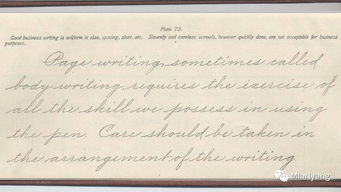 Plate 73.
Good business writing is uniform in size, spacing, slant, etc. Slovenly and careless scrawls, however quickly done, are not acceptable for business
purposes.
Page writing, sometimes called
body writing, requires the exercise of
all the skill we possess in using
the pen. Care should be taken in
the arrangement of the writing